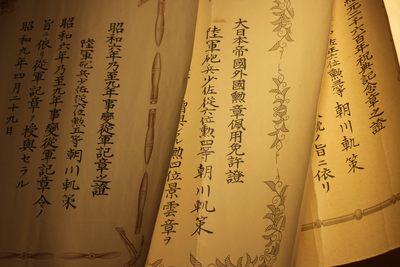 昭和六年乃至九年事變從軍記章之證
陸軍砲兵少佐從六位勲五等朝川軌策
昭和六年乃至九年事變從軍記章令ノ
旨ニ依リ從軍記章ヲ授與セラル
昭和九年四月二十九日
大日本帝國外國勲章佩用免許證
陸軍砲兵少佐從六位勲四等朝川軌策
勲四位景雲章ヲ
元二千六百年祝典記念章之證
從五位勲三等朝川軌策
旨ニ依リ